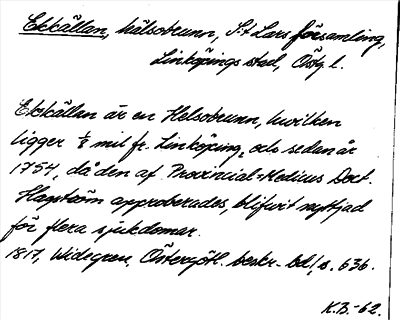 Ekkällan, hälsobrunn, S:t Lars församling,
Linköpings stad, Östg. l.
Ekkällan är en Helsobrunn, hvilken
ligger 1/8 mil fr. Linköping, och sedan år
1754, då den af Provincial-Medicus Doct.
Hagström approberades, blifvit nyttjad
för flera sjukdomar.
1817, Widegren, Östergötl. beskr. Bd 1, s. 636.
K.B.-62.